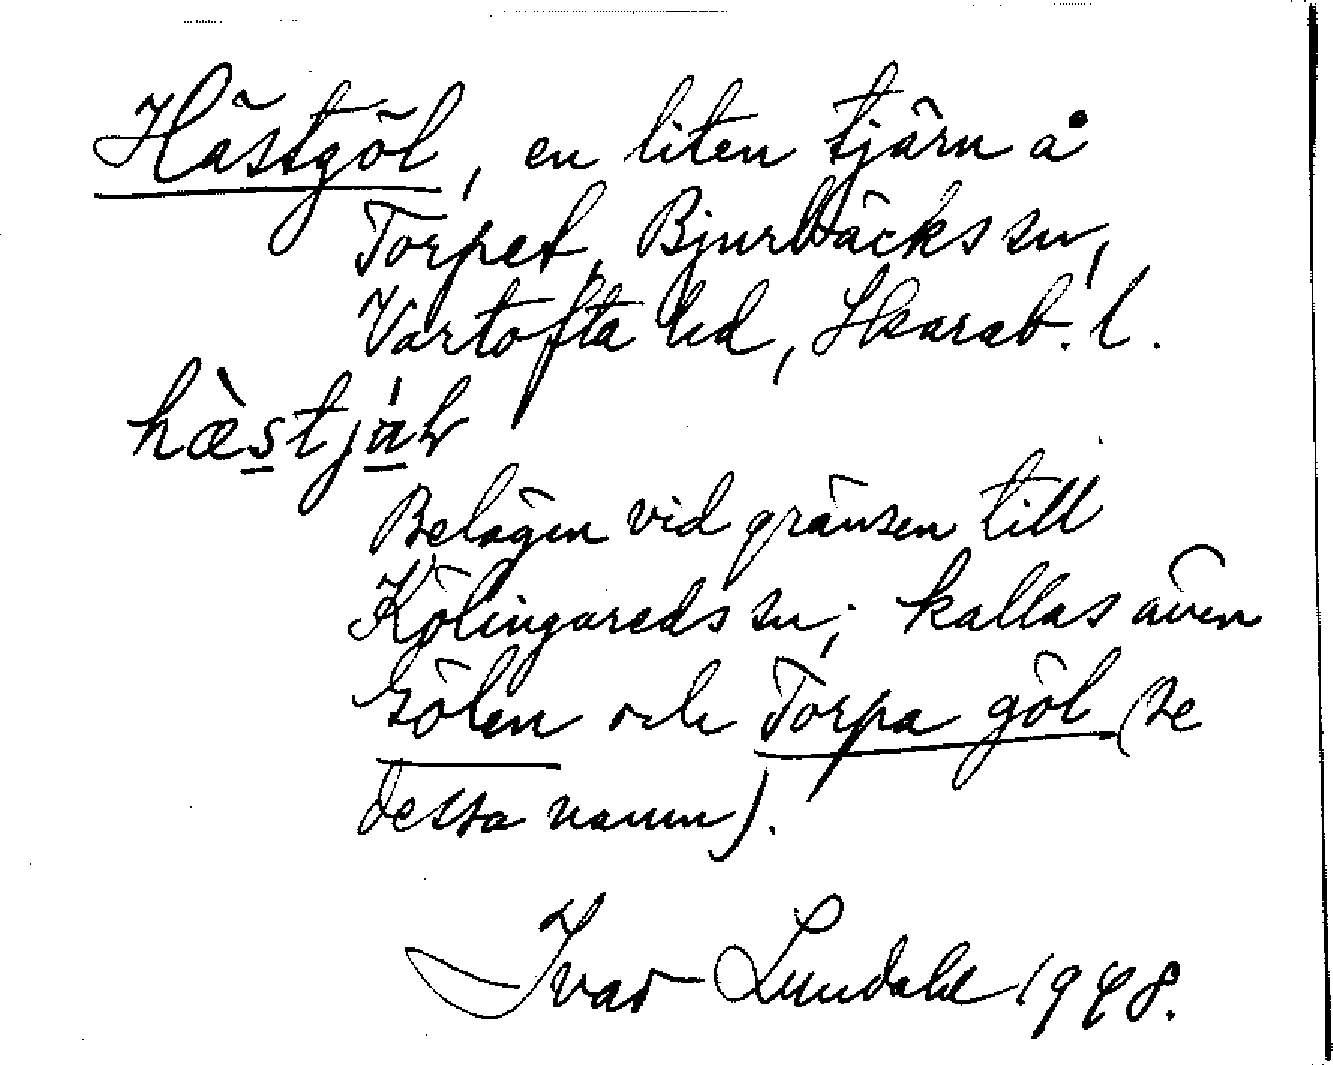 Hästgöl, en liten tjärn å
Torpet, Bjurbäcks sn,
Vartofta hd, Skarab. l.
Belägen vid gränsen till
Kölingareds sn; kallas även
Gölen och Torpa göl (se
dessa namn).
Ivar Lundahl 1948.